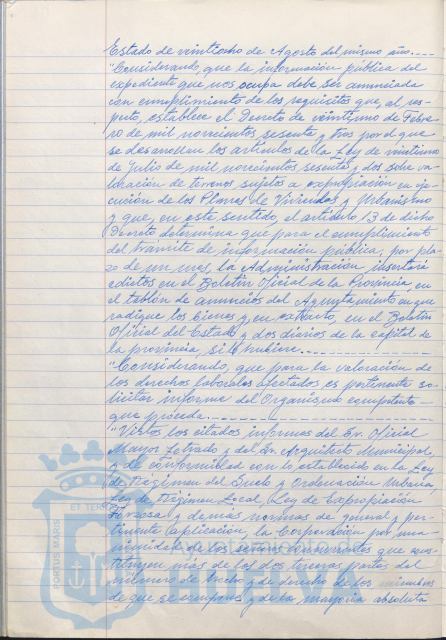 Estado de veintiocho de Agosto del mismo año.----
"Considerando, que la información pública del
expediente que nos ocupa debe ser anunciada
con cumplimiento de los requisitos que, al res-
pecto, establece el Decreto de veintiuno de Febre-
ro de mil novecientos sesenta y tres por el que
se desarrollan los artículos de la Ley de veintiuno
de Julio de mil novecientos sesenta y dos sobre va-
loración de terrenos sujetos a expropiación en eje-
cución de los Planes de Viviendas y Urbanismo
y que, en este sentido, el artículo 13 de dicho
Decreto determina que para el cumplimiento
del trámite de información pública, por pla-
zo de un mes, la Administración insertará
edictos en el Boletín Oficial de la Provincia, en
el tablón de anuncios del Ayuntamiento en que
radique los bienes y, en extracto, en el Boletín
Oficial del Estado y dos diarios de la capital de
la provincia, si los hubiere.----
"Considerando, que para la valoración de
los derechos laborales afectados es pertinente so-
licitar informe del Organismo competente
que proceda.----
"Vistos los citados informes del Sr. Oficial
Mayor Letrado y del Sr. Arquitecto Municipal,
y de conformidad con lo establecido en la Ley
de Régimen del Suelo y Ordenación Urbana,
Ley de Régimen Local, Ley de Expropiación
Forzosa y demás normas de general y per-
tinente aplicación, la Corporación por una-
nimidad de los señores concurrentes que cons-
tituyen más de las dos terceras partes del
número de hecho y de derecho de los miembros
de que se compone y de la mayoría absoluta
PORTUS MARIS ET TERR